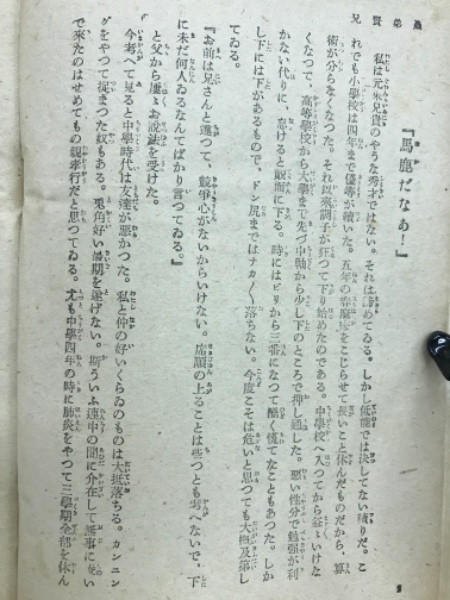 愚弟賢兄
『馬鹿だなあ！』
私は元来兄貴のやうな秀才ではない。それは諦めてゐる。しかし低能では決してない積りだ。こ
れでも小學校は四年まで優等が續いた。五年の時麻疹をこじらせて長いこと休んだものだから、算
術が分らなくなつた。それ以來調子が狂つて下り始めたのである。中學校へ入つてから益〻いけな
くなつて、高等學校から大學まで先づ中軸から少し下のところで押し通した。悪い性分で勉强が利
かない代りに、怠けると覿面に下る。時にはビリから三番になつて酷く慌てたこともあつた。しか
し下には下があるもので、ドン尻まではナカ〳〵落ちない。今度こそは危いと思つても大概及第し
てゐる。
『お前は兄さんと違つて、競爭心がないからいけない。席順の上ることは些つとも考へないで、下
に未だ何人ゐるなんてばかり言つてゐる。』
と父から屢〻お說法を受けた。
今考へて見ると中學時代は友達が悪かつた。私と仲の好いくらゐのものは大抵落ちる。カンニン
グをやつて捉まつた奴もある。兎角好い最期を遂げない。斯ういふ連中の間に介在して無事に
で來たのはせめてもの親孝行だと思つてゐる。尤も中學四年の時に肺炎をやつて三學期全部を休ん